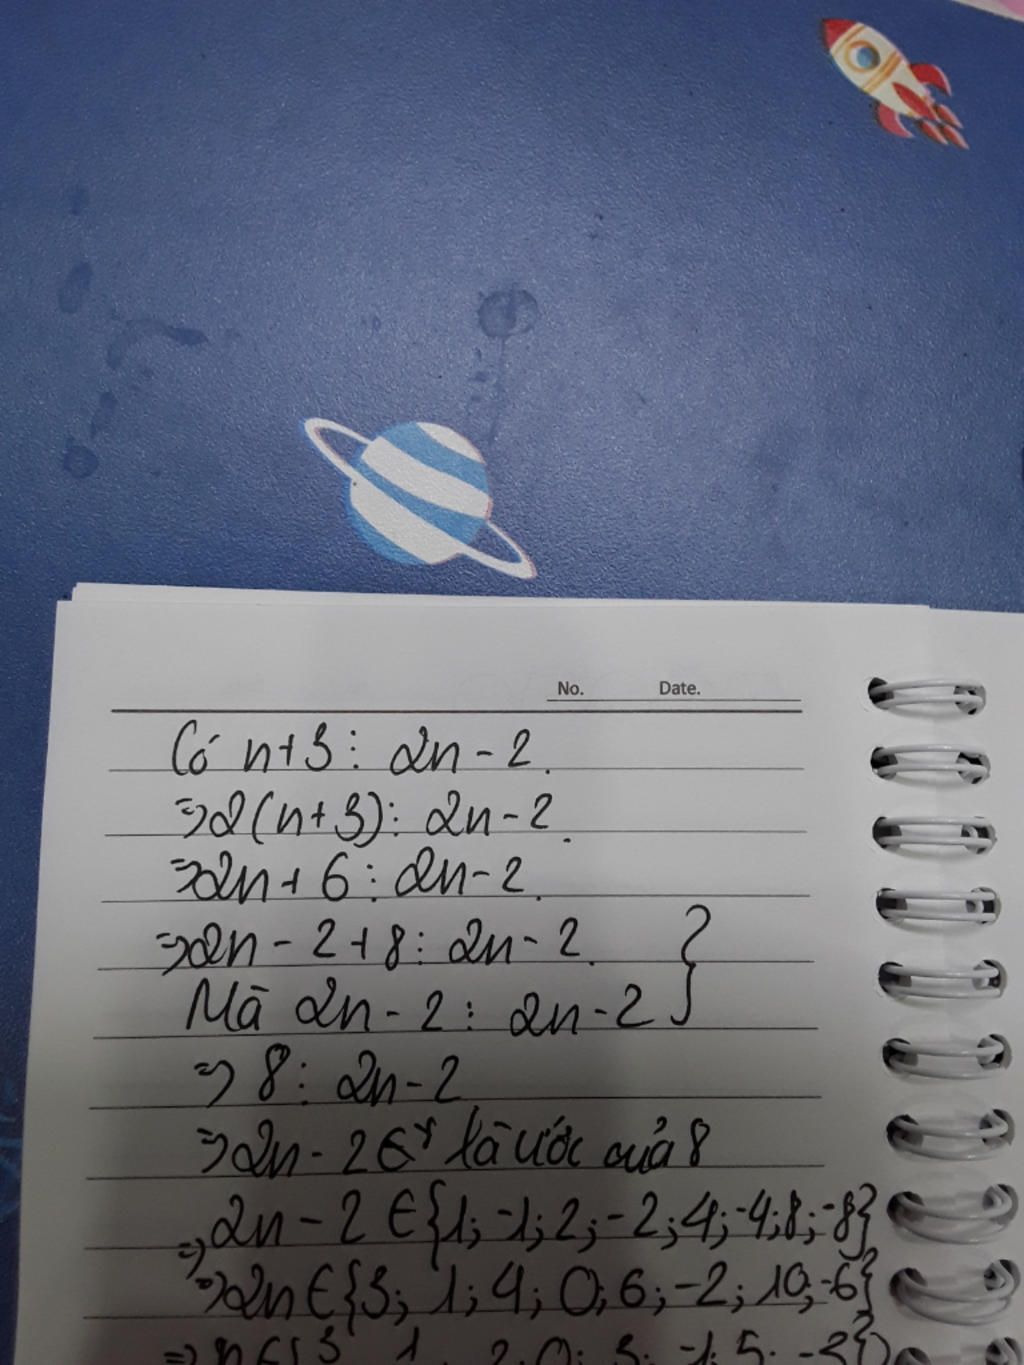 No. Date.
Có n+3 ⋮ 2n-2.
⇒2(n+3) ⋮ 2n-2.
⇒2n+6 ⋮ 2n-2.
⇒2n-2+8 ⋮ 2n-2. }
Mà 2n-2 ⋮ 2n-2
⇒ 8 ⋮ 2n-2
⇒2n-2 là ước của 8
⇒ 2n-2 ∈{1; -1; 2; -2; 4; -4; 8; -8}
⇒2n ∈{3; 1; 4; 0; 6; -2; 10; -6}